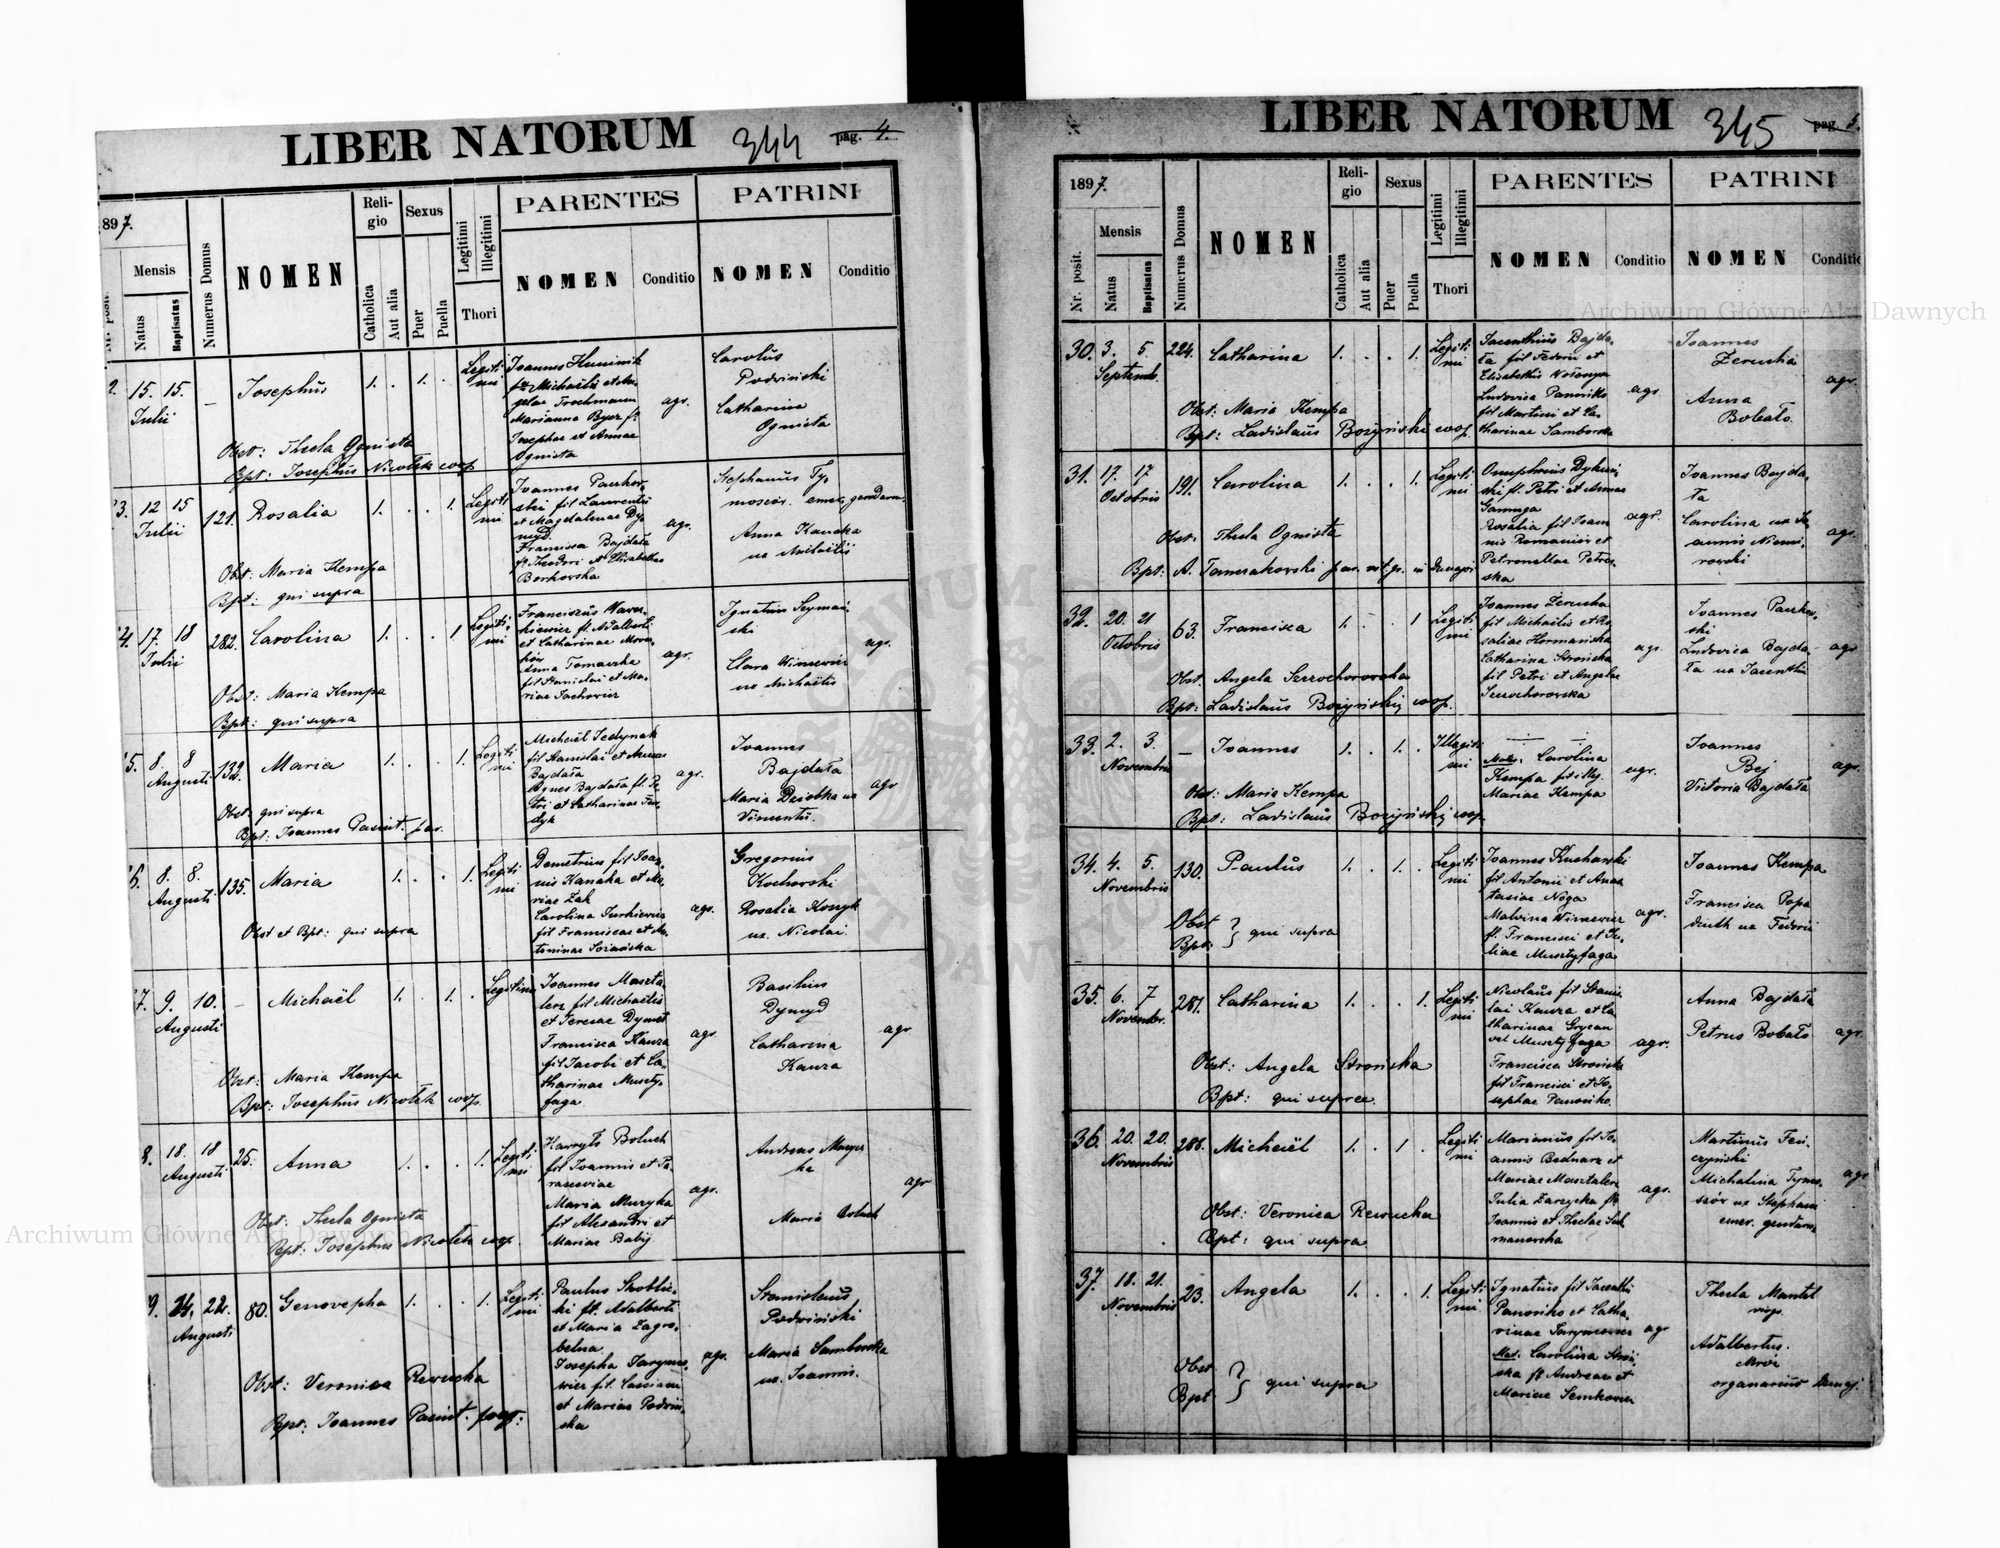 LIBER NATORUM 344 pag. 4.
897.
Nr. posit.
Mensis
Natus
Baptisatus
Numerus Domus
NOMEN
Reli-
gio
Catholica
Aut alia
Sexus
Puer
Puella
Legitimi
Illegitimi
Thori
PARENTES
NOMEN
Conditio
PATRINI
NOMEN
Conditio
2. 15. 15. – Josephus 1. . 1. .
Julii
Legiti
mi
Joannes
Michaëlis et
Marianna
Josephae et Annae
Ognista
agr.
Carolus
Podwiński
Catharina
Ognista
Obst: Thecla Ognista
Bpt: Josephus Nicolek coop.
3. 12 15 121. Rosalia 1. . . 1.
Julii
Legiti
mi
Joannes
ski fil Laurentii
et Magdalenae Dy
myd.
Francisca Bajdała
f. Theodori et Elisabethae
Borkowska
agr.
Stephanus Ty-
moscór. emer. gendarm.
Anna Kanaka
ux Michaëlis
Obst: Maria Kempa
Bpt: qui supra
4. 17. 18 282. Carolina 1. . . 1
Julii
Legiti-
mi
Franciscus Nawr-
kiewicz fl. Adalberti
et Catharinae
Anna
fil Stanislai et Ma-
riae Jachowicz
agr.
Ignatius Szymań-
ski
Clara Winiewicz
ux Michaëlis
agr.
Obst: Maria Kempa
Bpt: qui supra
5. 8. 8 132. Maria 1. . . 1.
Augusti
Legiti
mi
Michaël Jedynak
fil Stanislai et Annae
Bajdała
Agnes Bajdała fl. Pe-
tri et Catharinae Fe-
dyk
agr.
Joannes
Bajdała
Maria Dziobka ux
Vincentii.
agr
Obst. qui supra
Bpt: Joannes par.
6. 8. 8. 135. Maria 1. . . 1.
Augusti
Legiti
mi
Demetrius fil Joan-
nis Kanaka et Ma-
riae Żak
Carolina Jurkiewicz
fil Franciscae et An-
toninae
agr.
Gregorius
Kochorski
Rosalia
ux. Nicolai
Obst et Bpt: qui supra
7. 9. 10. – Michaël 1. . 1. .
Augusti
Legitimi
Joannes Maszta-
lerz fil Michaëlis
et Teresae Dymet
Francisca Kawza
fil Jacobi et Ca-
tharinae Muszty-
faga
agr.
Basilius
Dymyd
Catharina
Kawza
agr
Obst: Maria Kempa
Bpt: Josephus Nicolek coop.
8. 18. 18 25. Anna 1. . . 1.
Augusti
Legiti-
mi
Hawryło Boluch
fil Joannis et Pa-
rasceviae
Maria Muzyka
fil Alexandri et
Mariae Babij
agr.
Andreas Muzy-
ka
Maria Boluch
agr
Obst: Thecla Ognista
Bpt: Josephus Nicolek coop.
9. 24. 22. 80. Genovepha 1. . . 1.
Augusti
Legiti
mi
Paulus Skoblic-
ki fl. Adalberti
et Maria Zagro-
belna
Josepha Jaryme-
wicz fil.
et Mariae Podwiń-
ska
agr.
Stanislaus
Podwiński
Maria Samborska
ux. Joannis.
Obst: Veronica Rewucha
Bpt: Joannes
LIBER NATORUM 345 pag. 5.
1897.
Nr. posit.
Mensis
Natus
Baptisatus
Numerus Domus
NOMEN
Reli-
gio
Catholica
Aut alia
Sexus
Puer
Puella
Legitimi
Illegitimi
Thori
PARENTES
NOMEN
Conditio
PATRINI
NOMEN
Conditio
30. 3. 5. 224. Catharina 1. . . 1.
Septemb.
Legiti
mi
Jacenthius Bajda-
ła fil Fedorii et
Elisabethis
Ludovica Panońko
fil Martini et Ca-
tharinae Samborska
agr.
Joannes
Zerucha
Anna
Bobało.
agr.
Obst: Maria Kempa
Bpt: Ladislaus Bożyński coop.
31. 17. 17 191. Carolina 1. . . 1.
Octobris
Legiti
mi
Onuphrius Dykun-
ski fl. Petri et Annae
Samuga
Rosalia fil Joan
nis Romaniów et
Petronellae Petrow-
ska
agr.
Joannes Bajda-
ła
Carolina ux Jo-
annis Niemi-
rowski
agr.
Obst. Thecla Ognista
Bpt: A. Tomrakowski par. rit. gr. in Dunajów
32. 20. 21 63. Francisca 1. . . 1
Octobris
Legiti
mi
Joannes Zerucha
fil Michaëlis et Ro-
saliae Hermańska
Catharina Strońska
fil Petri et Angelae
Serwohorowska
agr.
Joannes
ski
Ludovica Bajda-
ła ux Jacenthii
agr
Obst. Angela Serwohorowska
Bpt: Ladislaus Bożyński, coop.
33. 2. 3. – Joannes 1. . 1. .
Novembris
Illegiti
mi
Mat. Carolina
Kempa fil illeg.
Mariae Kempa
agr.
Joannes
Bej
Victoria Bajdała
agr.
Obst: Maria Kempa
Bpt: Ladislaus Bożyński, coop.
34. 4. 5. 130. Paulus 1. . 1. .
Novembris
Legiti
mi
Joannes Kucharski
fil Antonii et Anas
tasiae Noga
Malvina Winiewicz
fl. Francisci et Ju-
liae Musztyfaga
agr.
Joannes Kempa
Francisca Popa
diuk ux Fedorii
Obst
Bpt: } qui supra
35. 6. 7 281. Catharina 1. . . 1.
Novembr.
Legiti
mi
Nicolaus fil Stanis-
lai Kawza et Ca
tharinae Grycan
vel Musztyfaga
Francisca Strońska
fil Francisci et Jo-
sephae Panońko.
agr.
Anna Bajdała
Petrus Bobało
agr.
Obst: Angela Strońska
Bpt: qui supra.
36. 20. 20. 286. Michaël 1. . 1 .
Novembris
Legiti
mi
Marianus fil Jo-
annis Bednarz et
Mariae Masztalerz
Julia Zarzycka fil
Joannis et Theclae Sul
manowska
agr.
Martinus Fen-
czyński
Michalina Tymo-
szów ux Stephani
emer. gendarm.
agr
Obst: Veronica Rewucha
Bpt: qui supra
37. 18. 21. 23. Angela 1. . . 1.
Novembris
Legiti
mi.
Ignatius fil Jacenthi
Panońko et Catha-
rinae Jarymowicz
Mat. Carolina Stroń-
ska fl Andreae et
Mariae Senkowicz
agr
Thecla Mantel
virgo.
Adalbertus.
Mróz
organarius Dunaj.
Obst
Bpt } qui supra
Archiwum Główne Akt Dawnych
Archiwum Główne Akt Dawnych